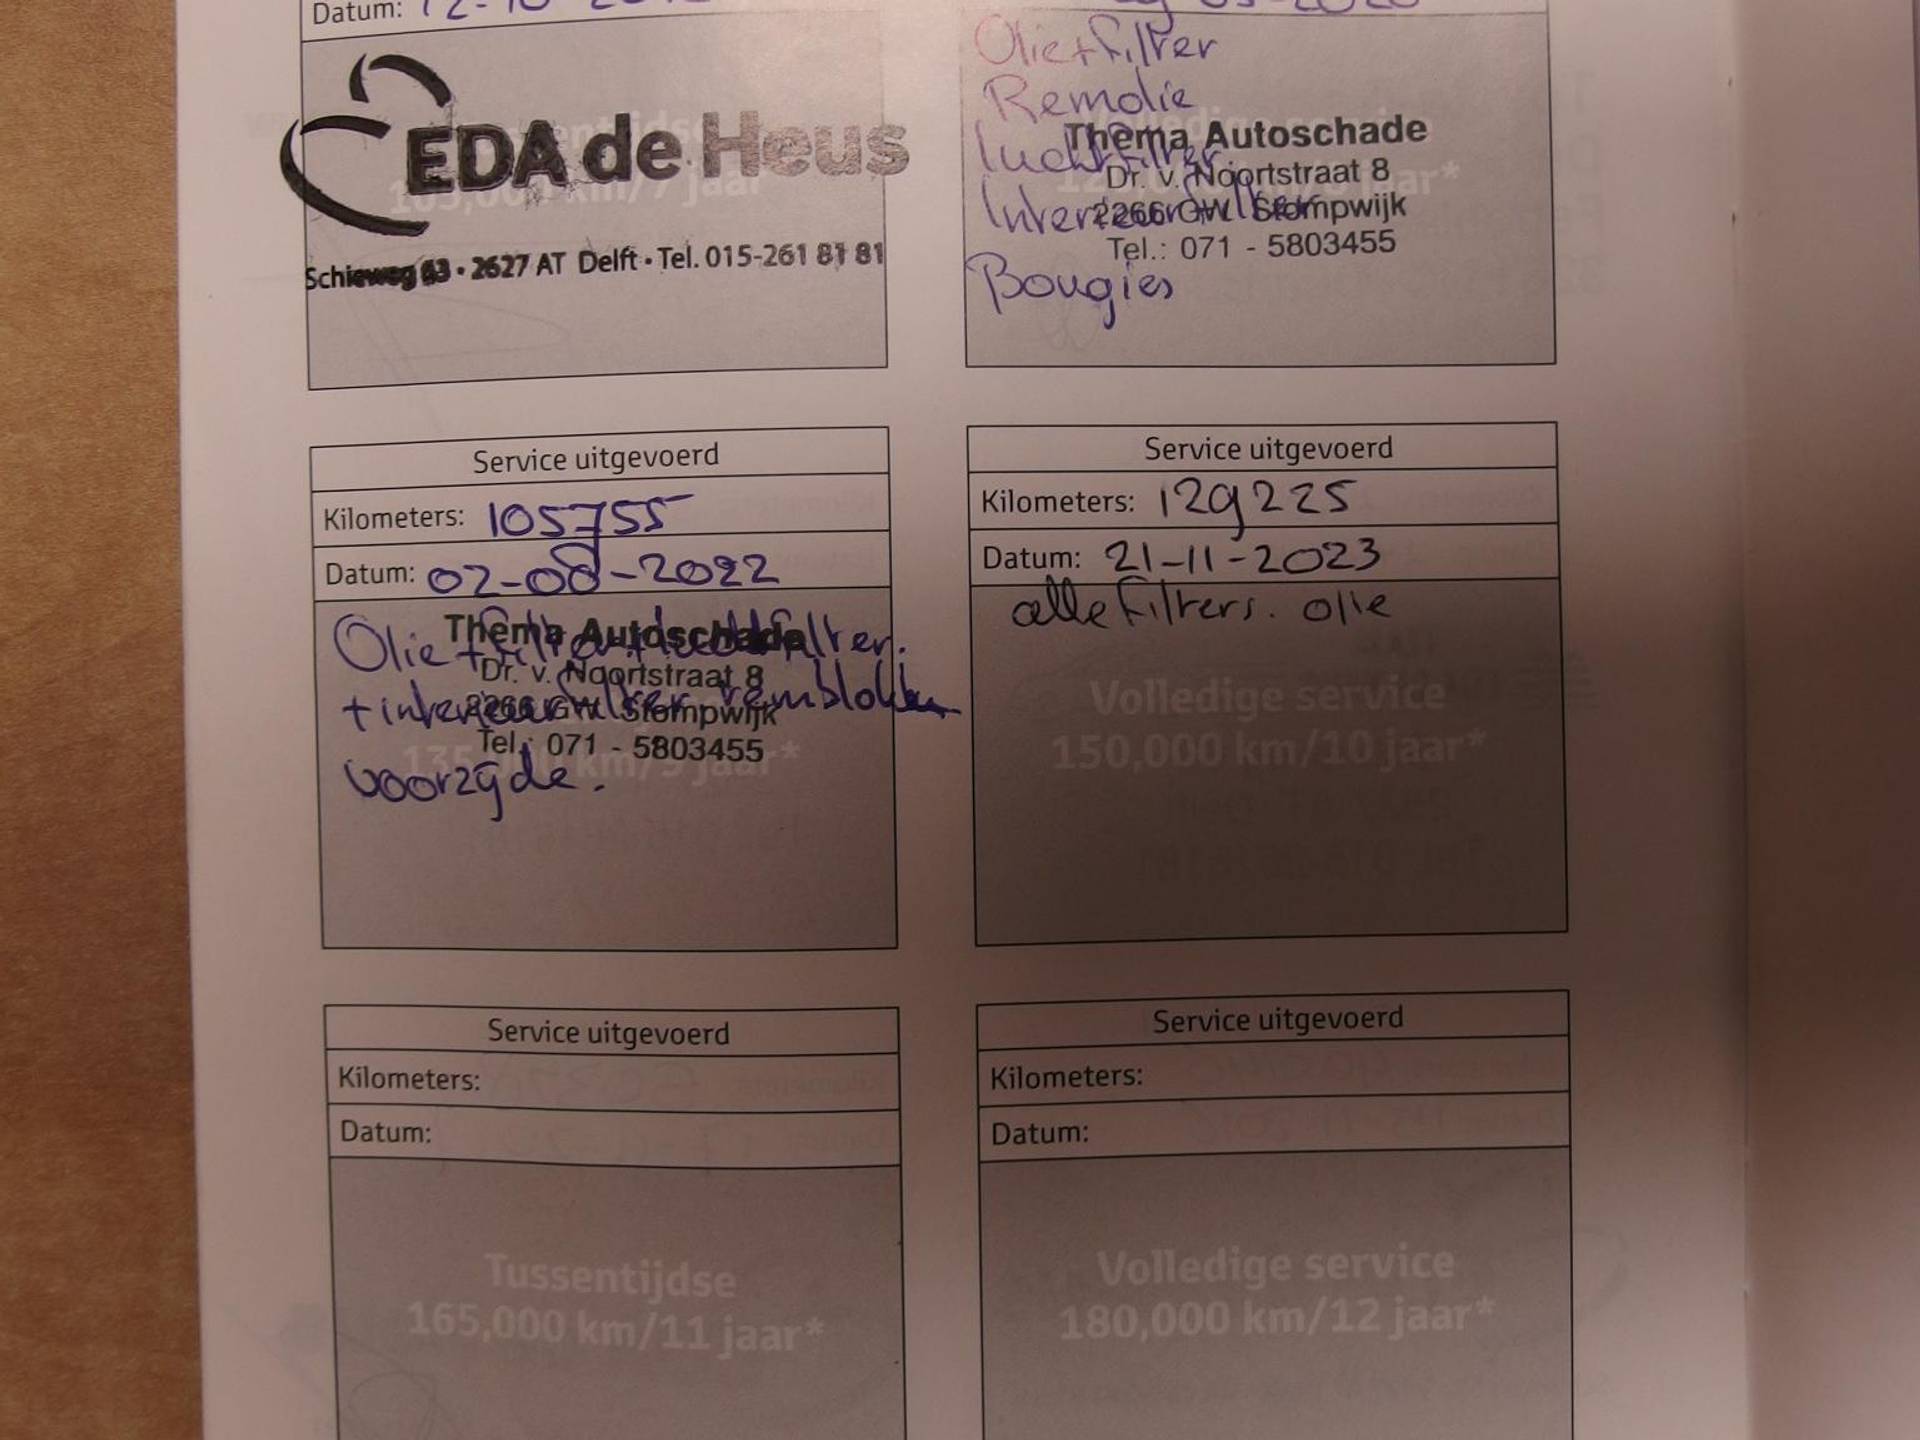 Datum: 12-10-201
03-2020
EDA de Heus
105,000 km/7 jaar
Schieweg 63 • 2627 AT Delft • Tel. 015-261 81 81
Olie + filter
Remolie
luchtfilter
Interieurfilter
Bougies
Thema Autoschade
Dr. v. Noortstraat 8
2266 GW Stompwijk
Tel.: 071 - 5803455
Service uitgevoerd
Kilometers: 105755
Datum: 02-08-2022
Olie + filter + luchtfilter.
+ interieurfilter remblokken
voorzijde.
Thema Autoschade
Dr. v. Noortstraat 8
2266 GW Stompwijk
Tel.: 071 - 5803455
135,000 km/9 jaar*
Service uitgevoerd
Kilometers: 129225
Datum: 21-11-2023
alle filters. olie
Volledige service
150,000 km/10 jaar*
Service uitgevoerd
Kilometers:
Datum:
Tussentijdse
165,000 km/11 jaar*
Service uitgevoerd
Kilometers:
Datum:
Volledige service
180,000 km/12 jaar*